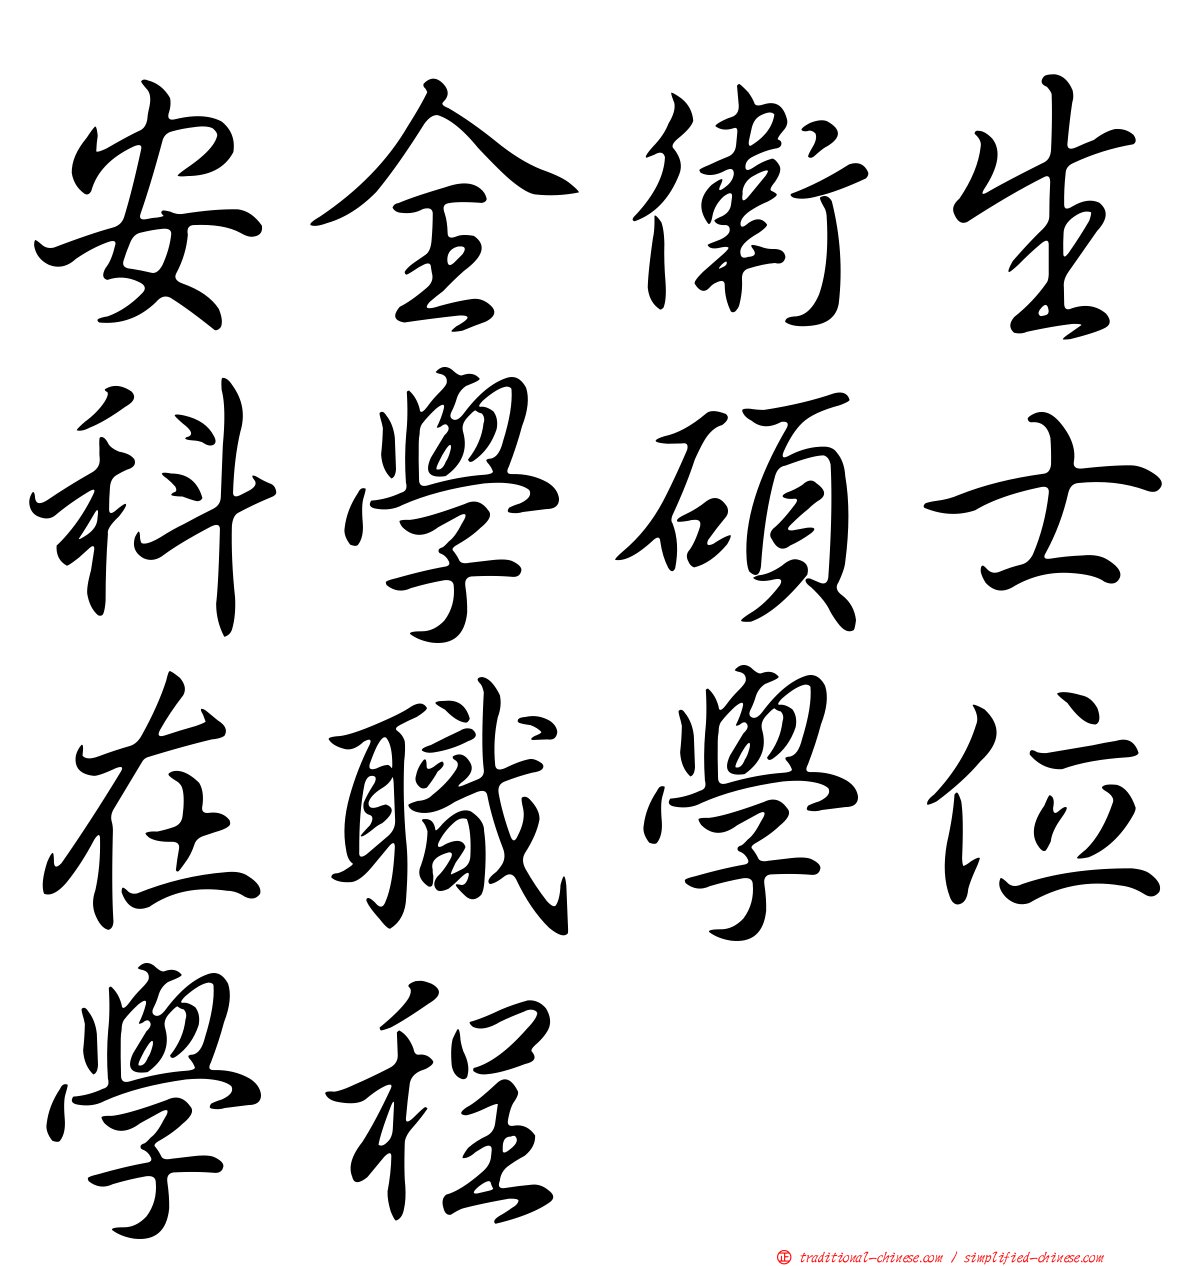 安全衛生
科學碩士
在職學位
學程
㊣ traditional-chinese.com / simplified-chinese.com